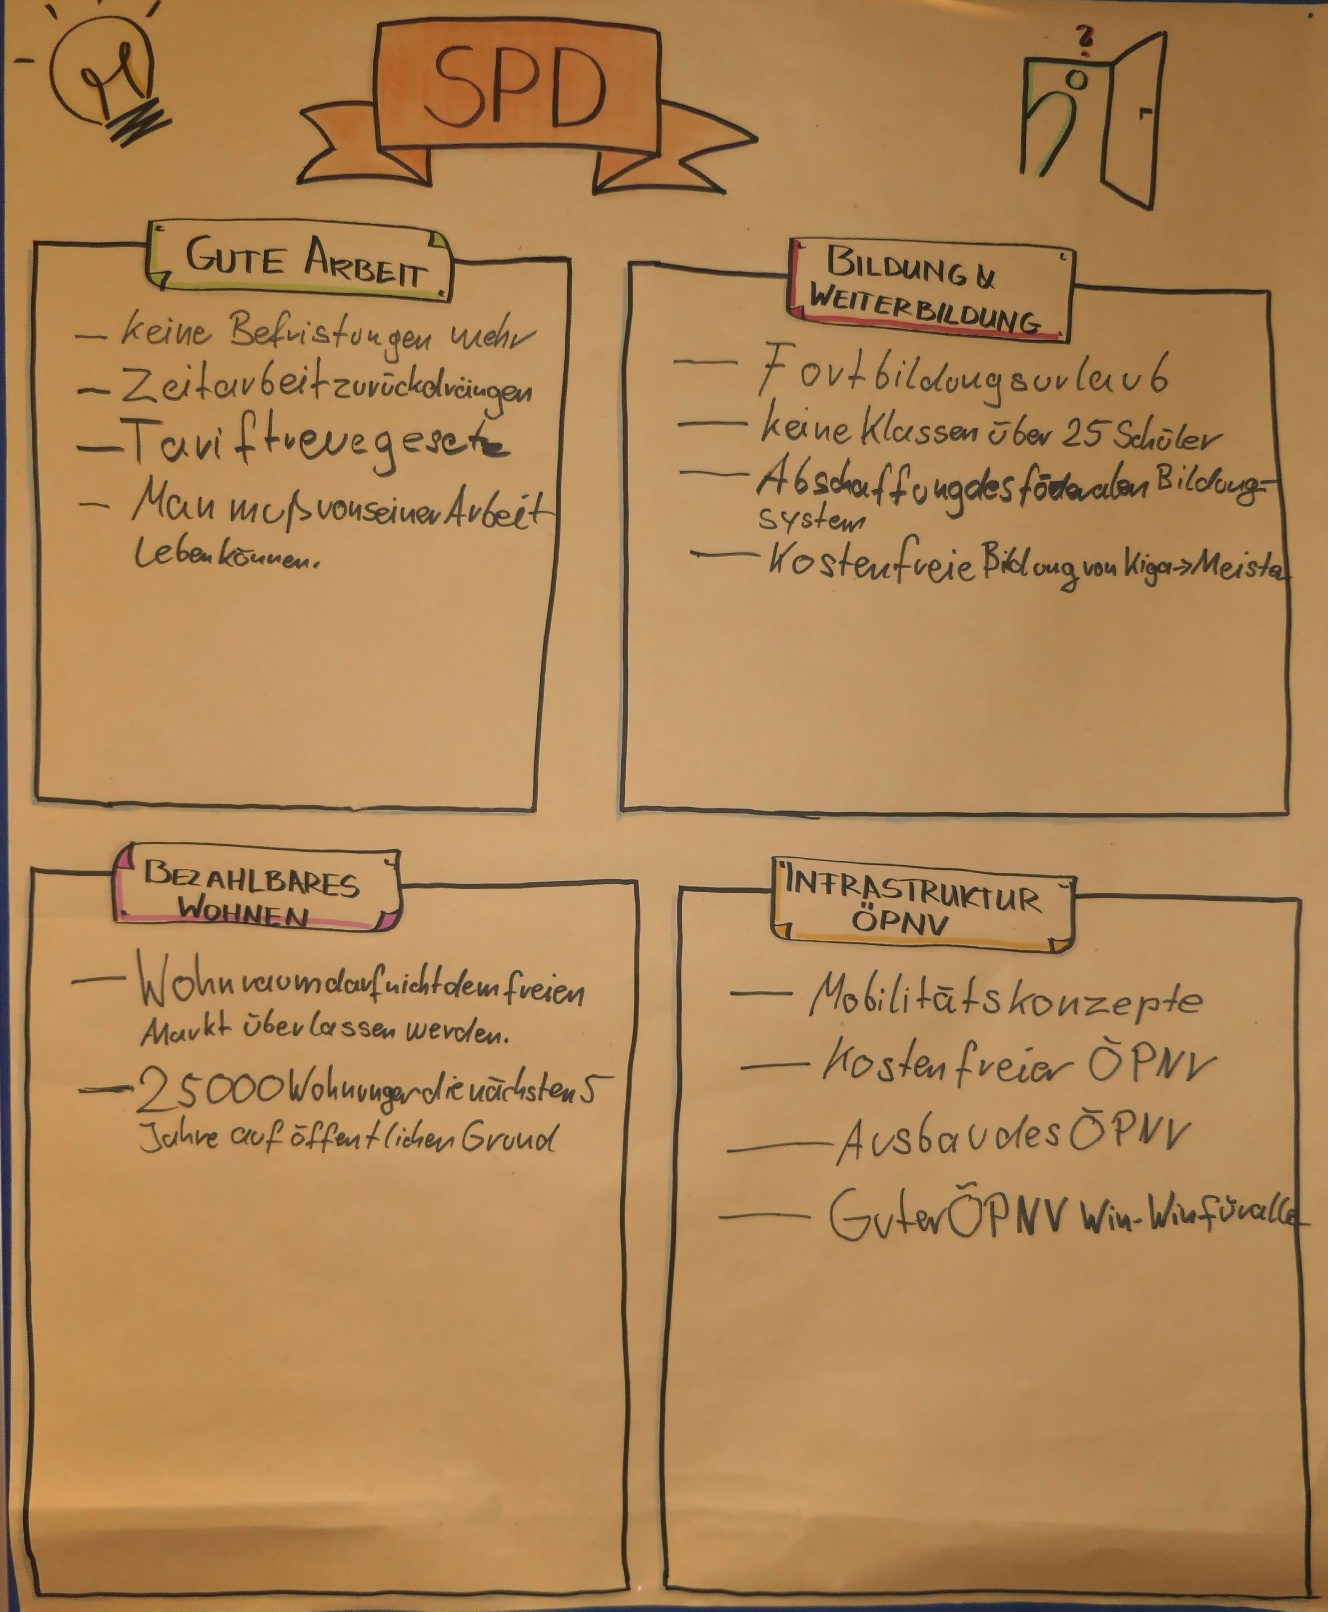 SPD
?
GUTE ARBEIT
– keine Befristungen mehr
– Zeitarbeit zurückdrängen
– Tariftreuegesetz
– Man muß von seiner Arbeit
Leben können.
BILDUNG &
WEITERBILDUNG
– Fortbildungsurlaub
– keine Klassen über 25 Schüler
– Abschaffung des föderalen Bildung-
system
– Kostenfreie Bildung von Kiga → Meister
BEZAHLBARES
WOHNEN
– Wohnraum darf nicht dem freien
Markt überlassen werden.
– 25000 Wohnungen die nächsten 5
Jahre auf öffentlichen Grund
INFRASTRUKTUR
ÖPNV
– Mobilitätskonzepte
– Kostenfreier ÖPNV
– Ausbau des ÖPNV
– Guter ÖPNV Win-Win für alle